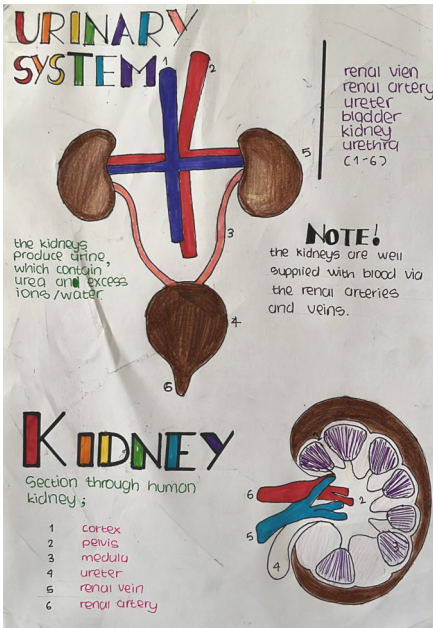 URINARY
SYSTEM
1
2
renal vien
renal artery
ureter
bladder
kidney
urethra
(1-6)
5
3
the kidneys
produce urine,
which contain,
urea and excess
ions/water
NOTE!
the kidneys are well
supplied with blood via
the renal arteries
and veins.
4
6
KIDNEY
Section through human
kidney;
1 cortex
2 pelvis
3 medula
4 ureter
5 renal vein
6 renal artery
6
2
5
4
3